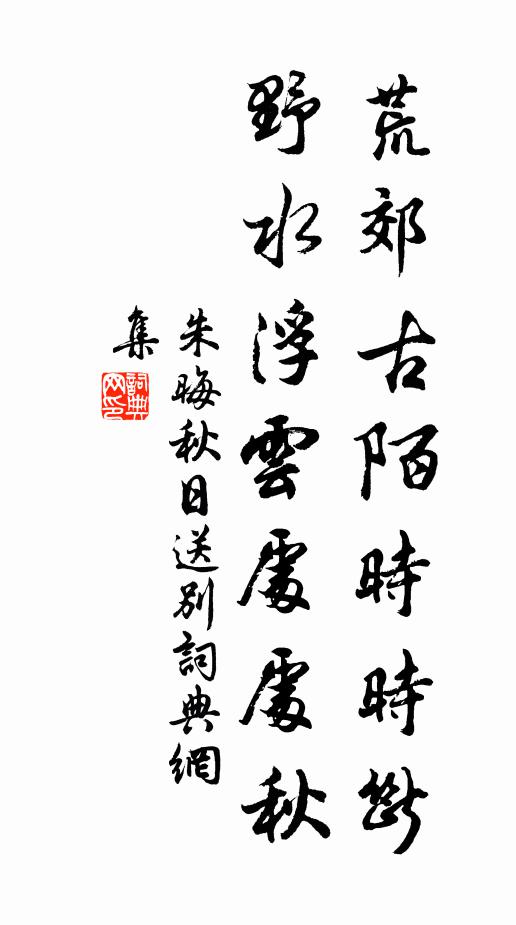 荒郊古陌時時斷
野水浮雲處處秋
朱晦秋日送別詞典網
集
詞典網印